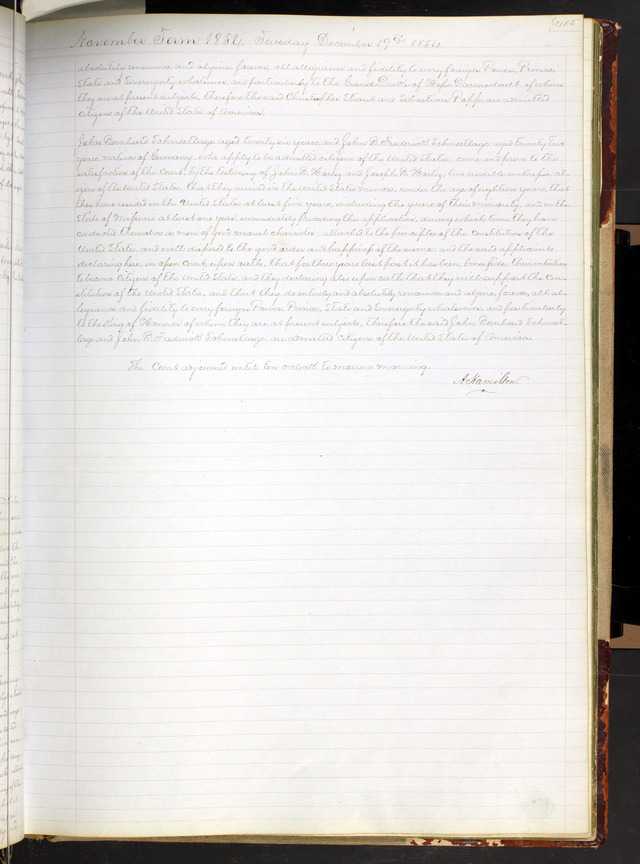 November Term 1854. Tuesday December 19th 1854
absolutely renounce and abjure forever, all allegiance and fidelity to every foreign Power, Prince,
State and Sovereignty whatsoever and particularly to the Grand Duke of Hesse Darmstadt of whom
they are at present subjects, therefore the said Christopher and Sebastian are admitted
citizens of the United States of America.
John Bernhard Schmeltage aged twenty six years, and John B. Frederick Schmeltage aged twenty two
years, natives of Germany, who apply to be admitted citizens of the United States, come and prove to the
satisfaction of the Court, by the testimony of John B. Harty and Joseph B. Harty, two credible witnesses, cit-
izens of the United States, that they arrived in the United States minors, under the age of eighteen years, that
they have resided in the United States at least five years, including the years of their minority, and in the
State of Missouri at least one year, immediately preceding this application, during which time they have
conducted themselves as men of good moral character, attached to the principles of the Constitution of the
United States, and well disposed to the good order and happiness of the same, and the said applicants
declaring here, in open Court, upon oath, that for three years last past it has been bona fide their intention
to become citizens of the United States, and they declaring also upon oath that they will support the Con-
stitution of the United States, and that they do entirely and absolutely renounce and abjure forever, all al-
legiance and fidelity to every foreign Power, Prince, State and Sovereignty whatsoever, and particularly
to the King of Hanover of whom they are at present subjects, therefore the said John Bernhard Schmel-
tage and John B. Frederick Schmeltage are admitted citizens of the United States of America.
The Court adjourned until ten o'clock to morrow morning.
A Hamilton